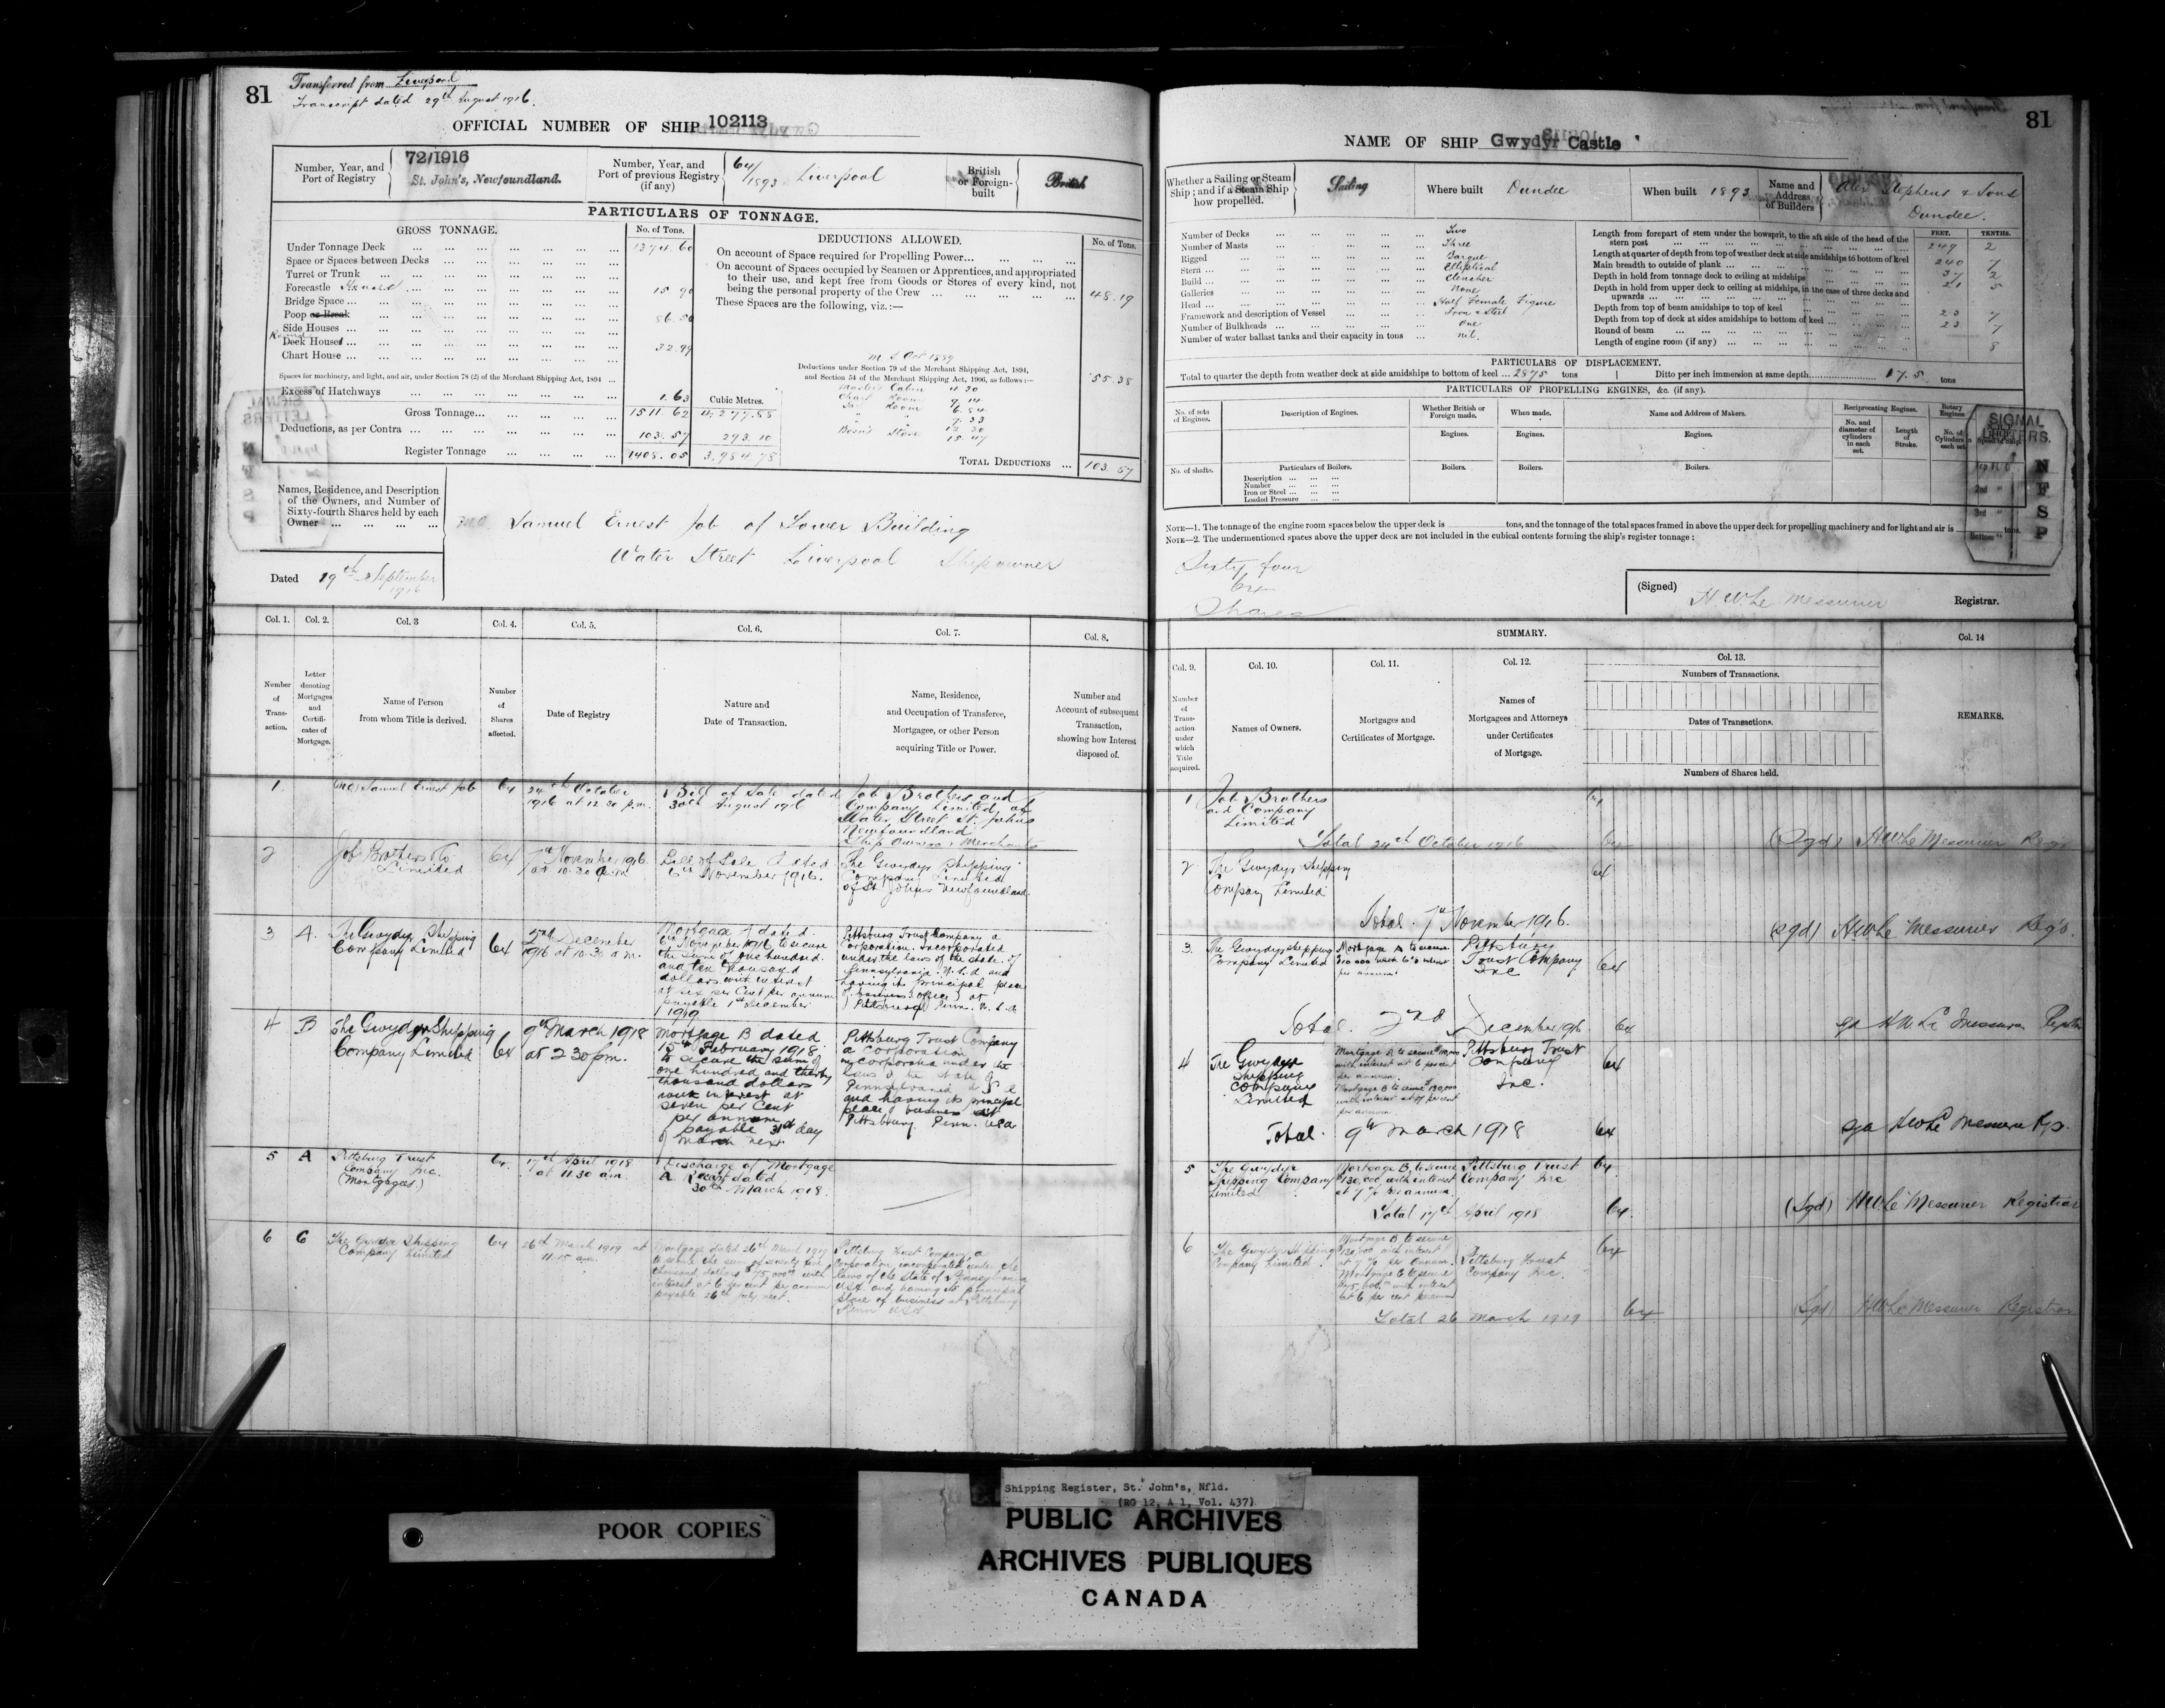 81
Transferred from Liverpool
Transcript dated 29th August 1916.
OFFICIAL NUMBER OF SHIP 102113
Number, Year, and Port of Registry
72/1916
St. John's, Newfoundland.
Number, Year, and Port of previous Registry (if any)
64/1893 Liverpool
British or Foreign-built
British
PARTICULARS OF TONNAGE.
GROSS TONNAGE.
No. of Tons.
Under Tonnage Deck ... 1374.60
Space or Spaces between Decks ...
Turret or Trunk ...
Forecastle ... 15.90
Bridge Space ...
Poop or Break ... 86.50
Side Houses ...
Round
Deck Houses ... 32.99
Chart House ...
Spaces for machinery, and light, and air, under Section 78 (2) of the Merchant Shipping Act, 1894 ...
Excess of Hatchways ... 1.63
Cubic Metres.
Gross Tonnage... 1511.62 4,277.88
Deductions, as per Contra ... 103.57 293.10
Register Tonnage ... 1408.05 3,984.78
DEDUCTIONS ALLOWED.
No. of Tons.
On account of Space required for Propelling Power...
On account of Spaces occupied by Seamen or Apprentices, and appropriated
to their use, and kept free from Goods or Stores of every kind, not
being the personal property of the Crew ... 48.19
These Spaces are the following, viz.:—
Deductions under Section 79 of the Merchant Shipping Act, 1894,
and Section 54 of the Merchant Shipping Act, 1906, as follows:— 55.38
Master's Cabin 4.30
Chart Room 9.14
Sail Room 6.84
Bosn's Store 15.47
TOTAL DEDUCTIONS ... 103.57
Names, Residence, and Description
of the Owners, and Number of
Sixty-fourth Shares held by each
Owner ...
Samuel Ernest Job of Tower Building
Water Street Liverpool Shipowner
Dated 19th September 1916
81
NAME OF SHIP Gwydyr Castle
Whether a Sailing or Steam Ship; and if a Steam Ship how propelled.
Sailing
Where built Dundee
When built 1893
Name and Address of Builders
Alex Stephens & Sons
Dundee.
Number of Decks ... Two
Number of Masts ... Three
Rigged ... Barque
Stern ... Elliptical
Build ... Clencher
Galleries ... None
Head ... Half Female Figure
Framework and description of Vessel ... Iron & Steel
Number of Bulkheads ... One
Number of water ballast tanks and their capacity in tons ... nil.
FEET. TENTHS.
Length from forepart of stem under the bowsprit, to the aft side of the head of the
stern post ... 249 2
Length at quarter of depth from top of weather deck at side amidships to bottom of keel 240 7
Main breadth to outside of plank ... 37 2
Depth in hold from tonnage deck to ceiling at midships 21 5
Depth in hold from upper deck to ceiling at midships, in the case of three decks and
upwards ...
Depth from top of beam amidships to top of keel 23 7
Depth from top of deck at sides amidships to bottom of keel ... 23 7
Round of beam ... 8
Length of engine room (if any) ...
PARTICULARS OF DISPLACEMENT.
Total to quarter the depth from weather deck at side amidships to bottom of keel ... 2875 tons | Ditto per inch immersion at same depth... 17.5 tons
PARTICULARS OF PROPELLING ENGINES, &c. (if any).
No. of sets of Engines.
Description of Engines.
Whether British or Foreign made.
When made.
Name and Address of Makers.
Reciprocating Engines.
Rotary Engines
Engines. Engines. Engines.
No. and diameter of cylinders in each set.
Length of Stroke.
No. of Cylinders in each set.
No. of shafts.
Particulars of Boilers.
Boilers. Boilers. Boilers.
Description ...
Number ...
Iron or Steel ...
Loaded Pressure ...
SIGNAL
LETTERS.
N
F
S
P
NOTE—1. The tonnage of the engine room spaces below the upper deck is tons, and the tonnage of the total spaces framed in above the upper deck for propelling machinery and for light and air is tons.
NOTE—2. The undermentioned spaces above the upper deck are not included in the cubical contents forming the ship's register tonnage:
Sixty four
64
Shares
(Signed) H. W. Le Messurier Registrar.
Col. 1. Col. 2. Col. 3 Col. 4. Col. 5. Col. 6. Col. 7. Col. 8.
Number of Transaction.
Letter denoting Mortgages and Certificates of Mortgage.
Name of Person from whom Title is derived.
Number of Shares affected.
Date of Registry
Nature and Date of Transaction.
Name, Residence, and Occupation of Transferee, Mortgagee, or other Person acquiring Title or Power.
Number and Account of subsequent Transaction, showing how Interest disposed of.
1 Samuel Ernest Job 64 24th October 1916 at 12.30 p.m.
Bill of Sale dated 30th August 1916
Job Brothers and Company Limited of Water Street St. Johns Newfoundland Ship Owners & Merchants
2 Job Brothers & Co Limited 64 7th November 1916 at 10.30 a.m.
Bill of Sale dated 6th November 1916.
The Gwydyr Shipping Company Limited of St. Johns Newfoundland
3 A. The Gwydyr Shipping Company Limited 64 2nd December 1916 at 10.30 a.m.
Mortgage A dated 6th November 1916 to secure the sum of one hundred and ten thousand dollars with interest at six per cent per annum payable 1st December 1919
Pittsburg Trust Company a Corporation Incorporated under the laws of the state of Pennsylvania U.S.A and having its principal place of business (office) at Pittsburg Penn. U.S.A
4 B The Gwydyr Shipping Company Limited 64 9th March 1918 at 2.30 pm.
Mortgage B dated 15th February 1918 to secure the sum of one hundred and thirty thousand dollars with interest at seven per cent per annum payable 31st day of March next
Pittsburg Trust Company a corporation incorporated under the laws of the State of Pennsylvania U S A and having its principal place of business at Pittsburg Penn. USA
5 A Pittsburg Trust Company Inc. (Mortgagees) 64. 17th April 1918 at 11.30 a.m.
Discharge of Mortgage A Receipt dated 30th March 1918.
6 C The Gwydyr Shipping Company Limited 64 26th March 1919 at 11.15 a.m.
Mortgage dated 26th March 1919 to secure the sum of seventy five thousand dollars $75,000 with interest at 6 per cent per annum payable 26th July next.
Pittsburg Trust Company, a Corporation incorporated under the laws of the State of Pennsylvania USA and having its principal place of business at Pittsburg Penn USA
SUMMARY.
Col. 9. Col. 10. Col. 11. Col. 12. Col. 13. Col. 14
Number of Transaction under which Title acquired.
Names of Owners.
Mortgages and Certificates of Mortgage.
Names of Mortgagees and Attorneys under Certificates of Mortgage.
Numbers of Transactions.
Dates of Transactions.
Numbers of Shares held.
REMARKS.
1 Job Brothers and Company Limited 64
Total 24th October 1916 64 (Sgd) H W Le Messurier Regr
2 The Gwydyr Shipping Company Limited 64
Total 7th November 1916. (sgd) H W Le Messurier Regr.
3. The Gwydyr Shipping Company Limited Mortgage A to secure $110 000 with 6% interest per annum Pittsburg Trust Company Inc 64
Total. 2nd December 1916. 64 sgd H W Le Messurier
4 The Gwydyr Shipping Company Limited
Mortgage A to secure $110,000 with interest at 6 per cent per annum.
Mortgage B to secure $130,000 with interest at 7 per cent per annum
Pittsburg Trust Company Inc. 64
Total. 9th March 1918 64 sgd H W Le Messurier
5 The Gwydyr Shipping Company Limited Mortgage B, to secure $130,000 with interest at 7% per annum. Pittsburg Trust Company Inc 64.
Total 17th April 1918 64. (Sgd) H W Le Messurier Registrar
6 The Gwydyr Shipping Company Limited.
Mortgage B to secure $130,000 with interest at 7% per annum.
Mortgage C to secure $75,000 with interest at 6 per cent per annum
Pittsburg Trust Company Inc. 64
Total 26 March 1919 64 (Sgd) H W Le Messurier Registrar
POOR COPIES
Shipping Register, St. John's, Nfld.
(RG 12, A 1, Vol. 437)
PUBLIC ARCHIVES
ARCHIVES PUBLIQUES
CANADA